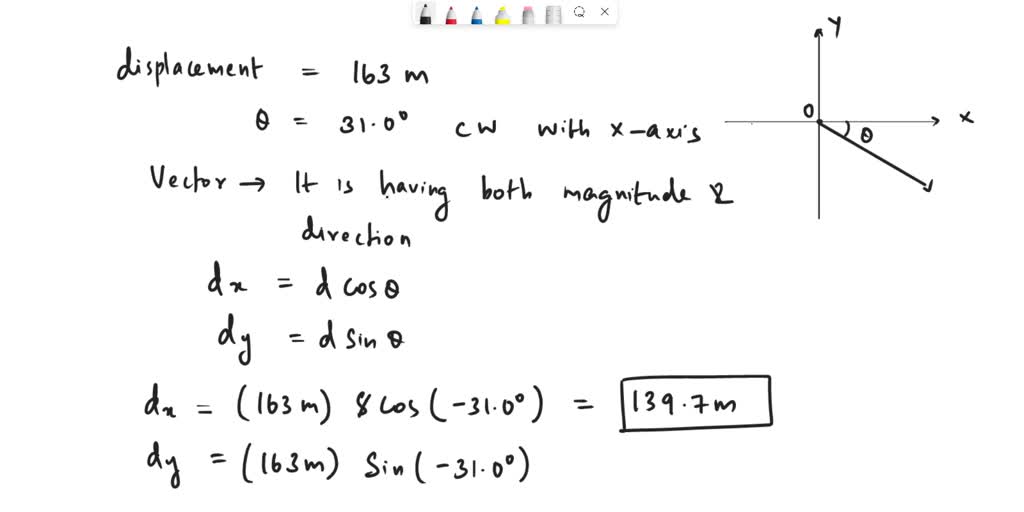 displacement = 163 m
θ = 31.0° CW with x-axis
Vector → It is having both magnitude &
direction
dx = d cosθ
dy = d sin θ
dx = (163 m) 8 cos(-31.0°) = 139.7m
dy = (163m) Sin(-31.0°)
Y
O
θ
X